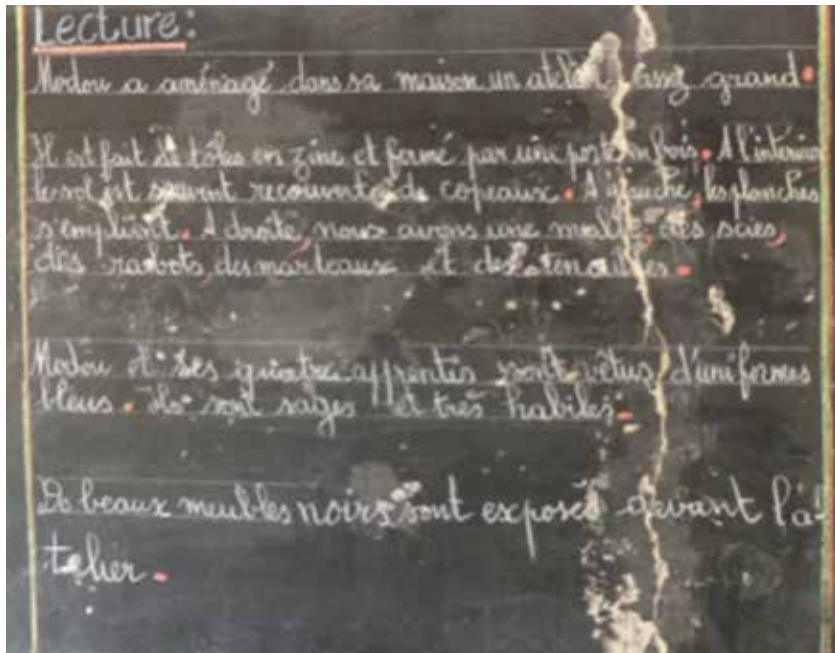 Lecture:
Modou a aménagé dans sa maison un atelier assez grand.
Il est fait de tôles en zinc et fermé par une porte en bois. A l'intérieur
le sol est souvent recouvert de copeaux. A gauche, les planches
s'empilent. A droite, nous avons une malle, des scies,
des rabots, des marteaux et des tenailles.
Modou et ses quatre apprentis sont vêtus d'uniformes
bleus. Ils sont sages et très habiles.
De beaux meubles noirs sont exposés devant l'a-
telier.